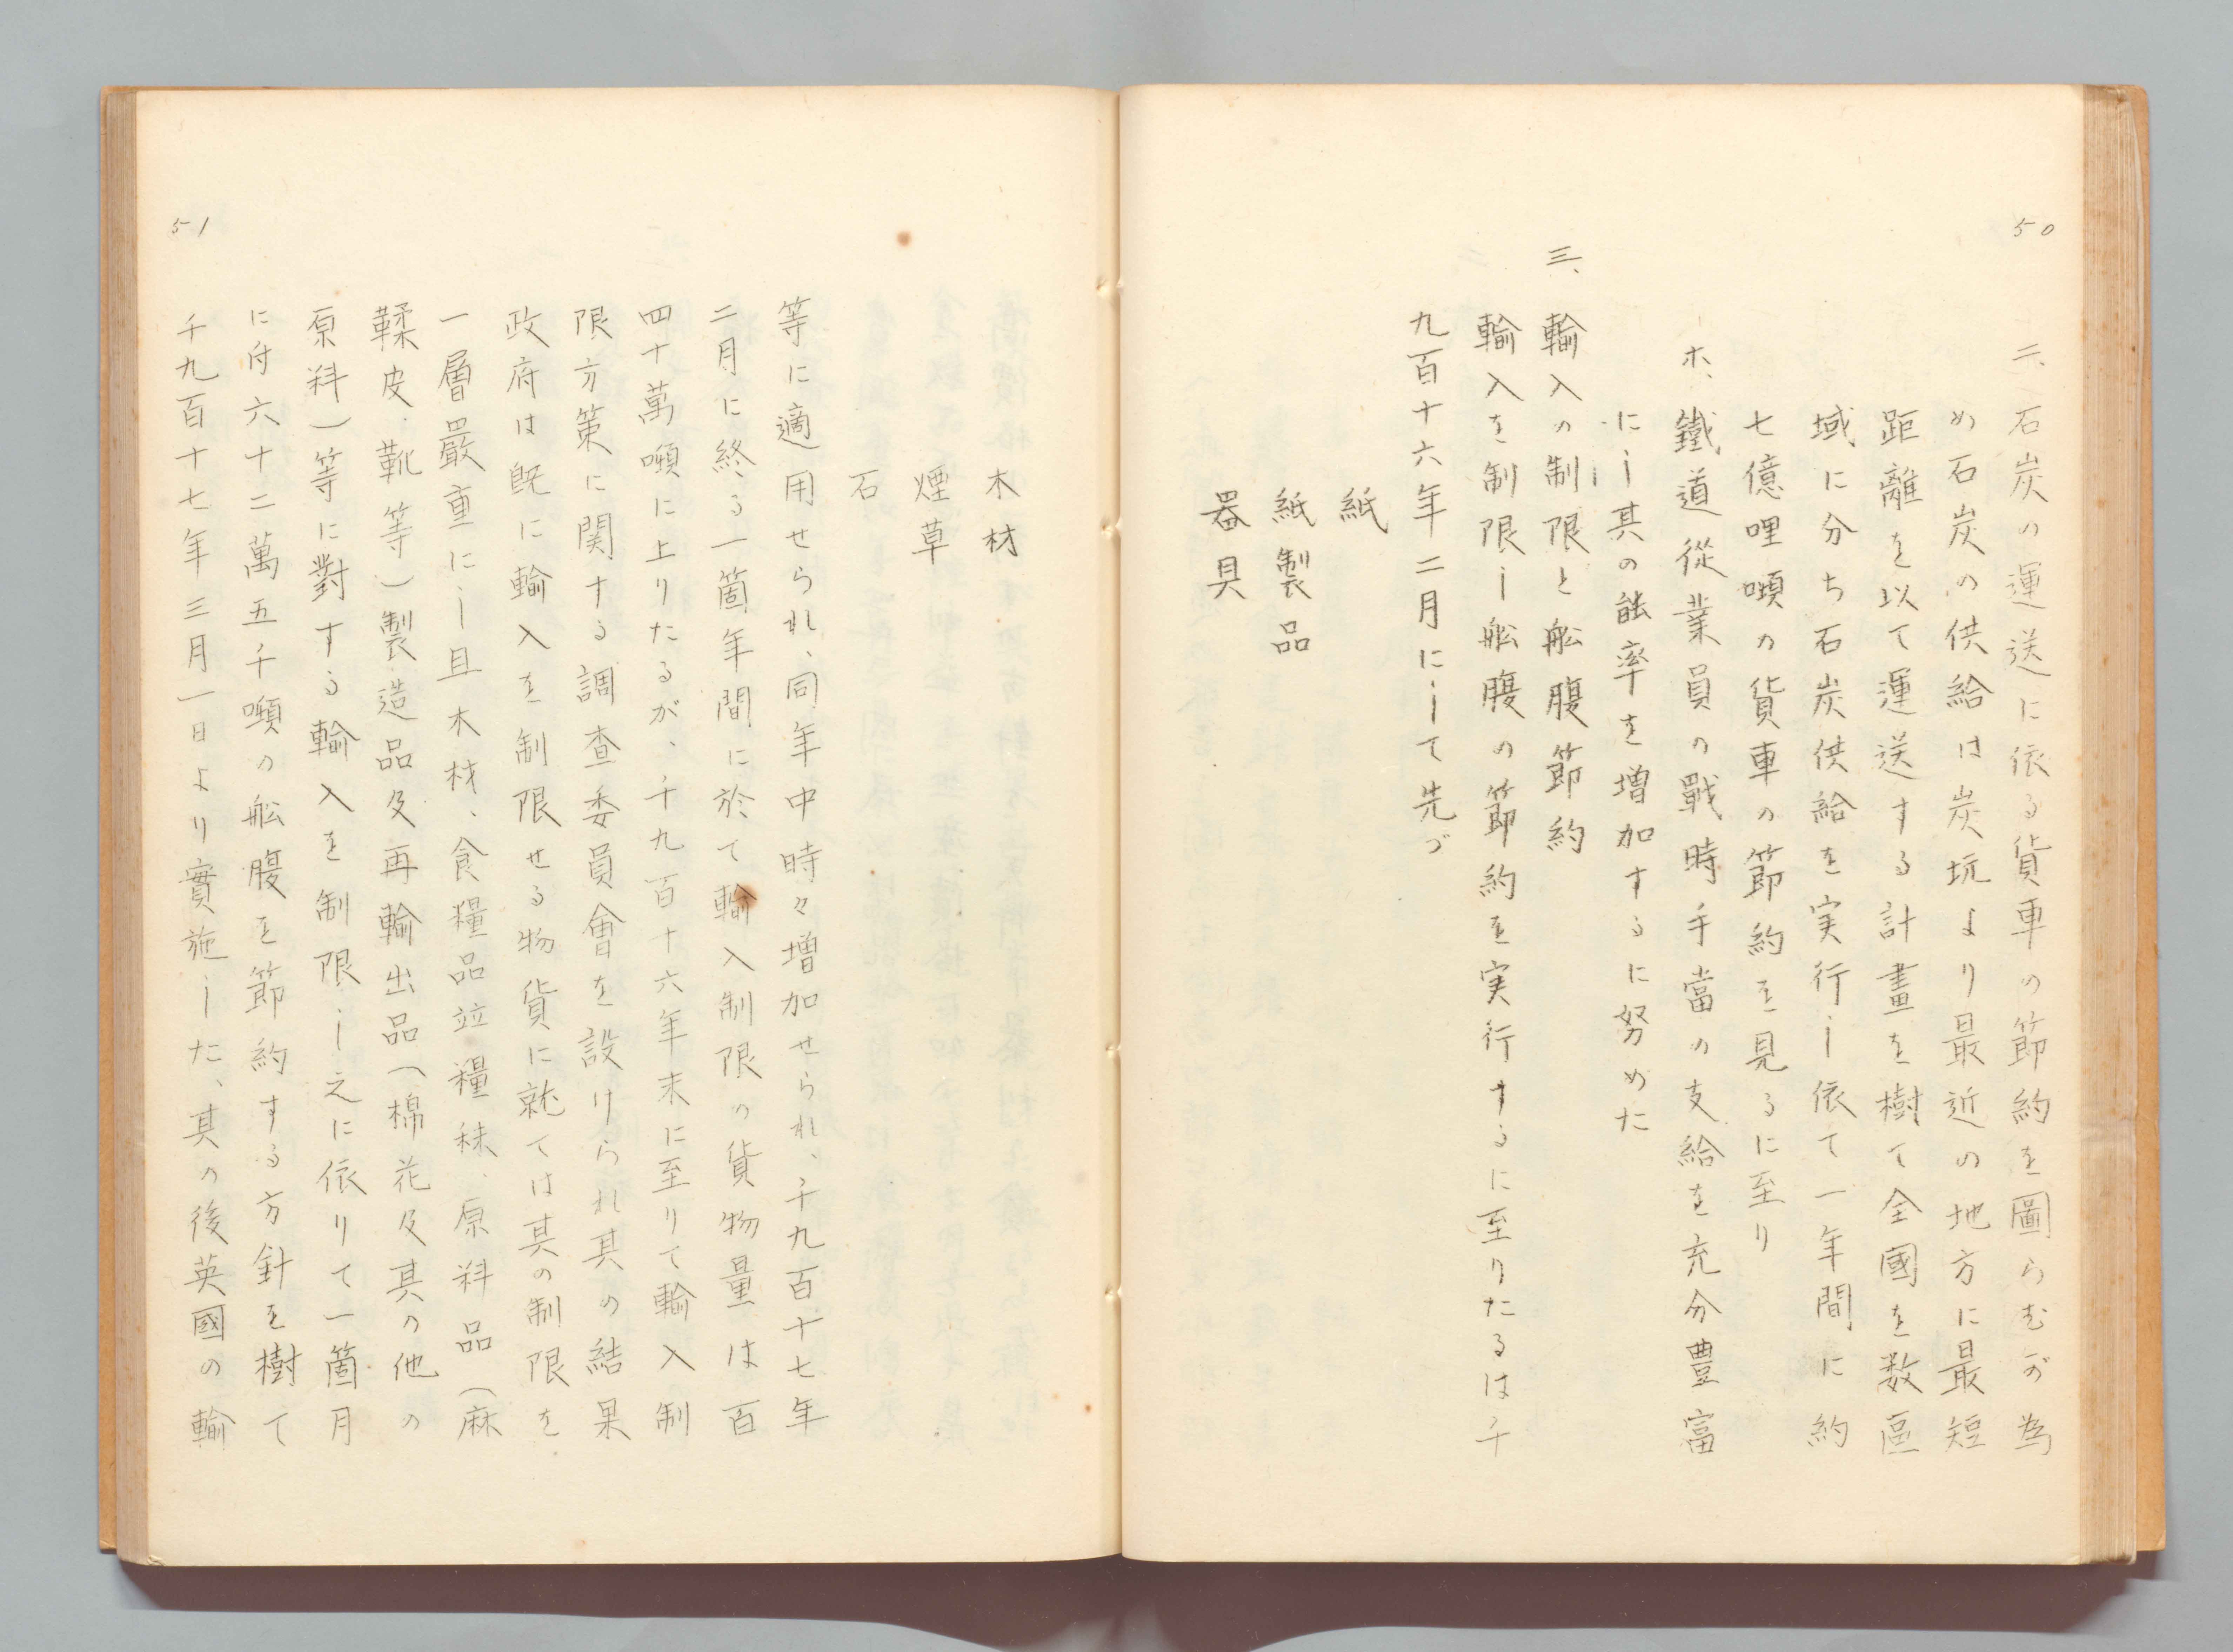 50
ニ、石炭の運送に依る貨車の節約を圖らむが為
め石炭の供給は炭坑より最近の地方に最短
距離を以て運送する計畫を樹て全國を数區
域に分ち石炭供給を実行し依て一年間に約
七億哩噸の貨車の節約を見るに至り
ホ、鐵道從業員の戰時手當の支給を充分豊富
にし其の能率を増加するに努めた
三、輸入の制限と舩腹節約
輸入を制限し舩腹の節約を実行するに至りたるは千
九百十六年二月にして先づ
紙
紙製品
器具
木材
煙草
石
等に適用せられ、同年中時々増加せられ、千九百十七年
二月に終る一箇年間に於て輸入制限の貨物量は百
四十萬噸に上りたるが、千九百十六年末に至りて輸入制
限方策に関する調査委員會を設けられ其の結果
政府は既に輸入を制限せる物貨に就ては其の制限を
一層嚴重にし且木材、食糧品竝糧秣、原料品(麻
鞣皮、靴等)製造品及再輸出品(棉花及其の他の
原料)等に對する輸入を制限し之に依りて一箇月
に付六十二萬五千噸の舩腹を節約する方針を樹て
千九百十七年三月一日より實施した、其の後英國の輸
51